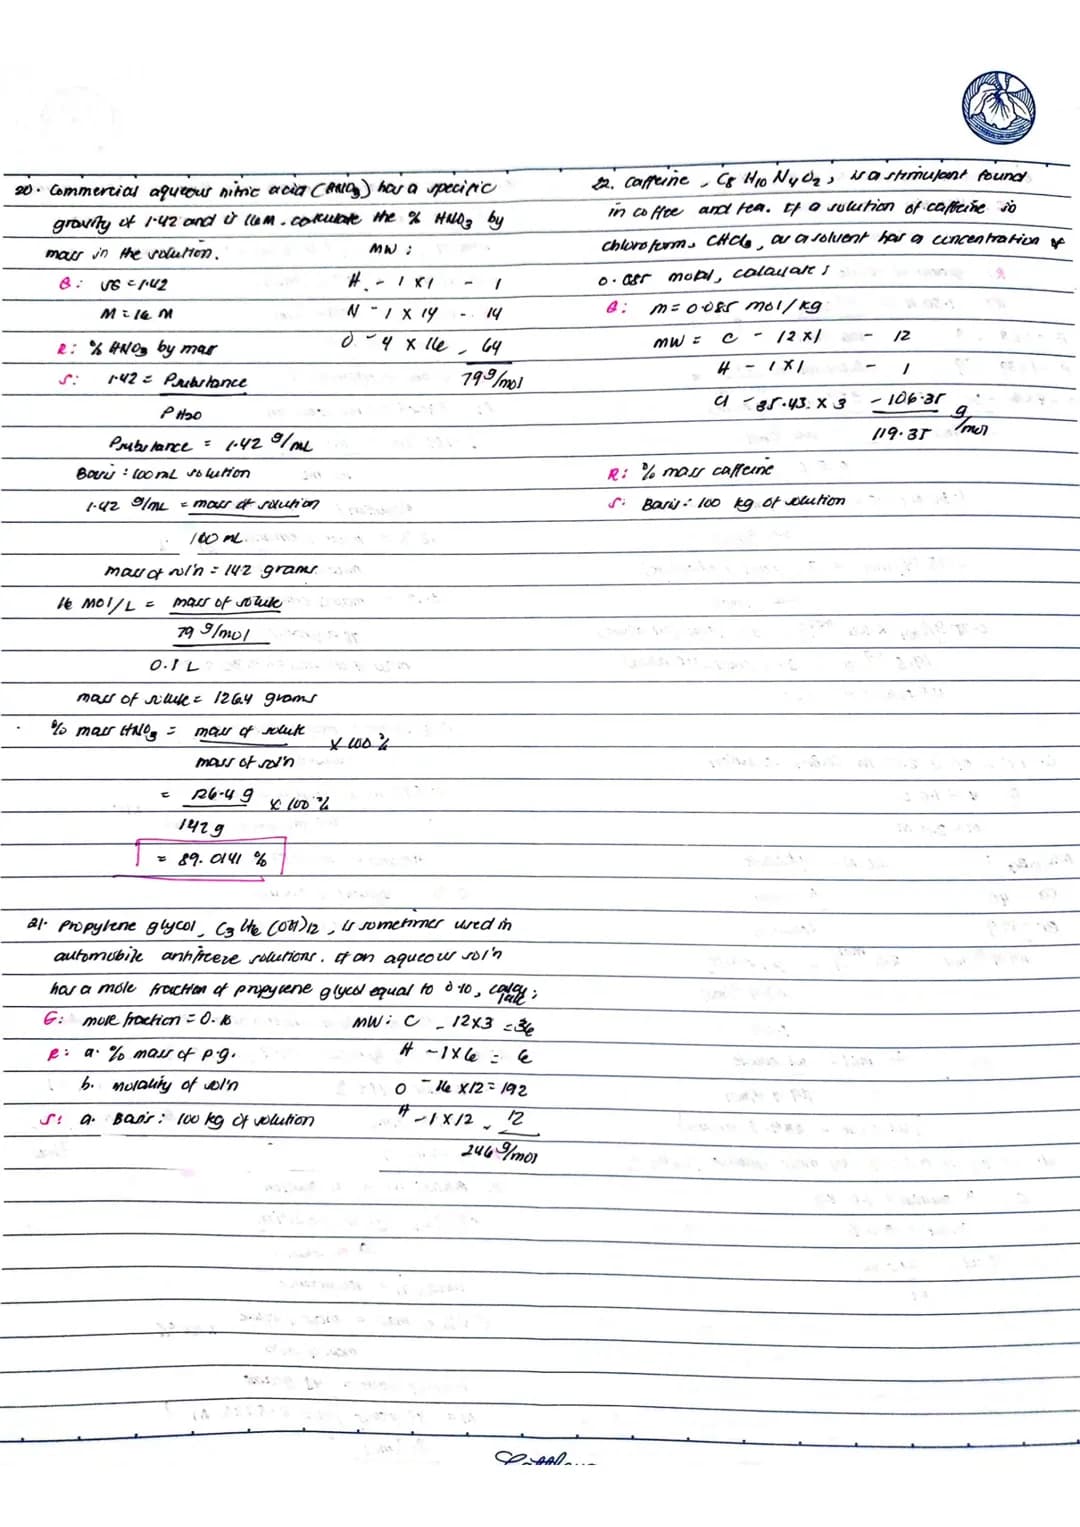 20. Commercial aqueous nitric acid (HNO3) has a specific
gravity of 1.42 and is 16M. calculate the % HNO3 by
mass in the solution.
MW :
G: SG = 1.42
H - 1 x 1 - 1
M = 16 M
N - 1 x 14 - 14
R: % HNO3 by mass
O - 4 x 16 - 64
79 g/mol
S: 1.42 = ρsubstance
ρH2O
ρsubstance = 1.42 g/mL
Basis : 100 mL solution
1.42 g/mL = mass of solution
100 mL
mass of sol'n = 142 grams
16 mol/L = mass of solute
79 g/mol
0.1 L
mass of solute = 126.4 grams
% mass HNO3 = mass of solute x 100 %
mass of sol'n
= 126.4 g x 100 %
142 g
= 89.0141 %
21. Propylene glycol, C3 H6 (OH)12, is sometimes used in
automobile antifreeze solutions. If an aqueous sol'n
has a mole fraction of propylene glycol equal to 0.10, calculate :
G: mole fraction = 0.10
MW: C - 12x3 = 36
R: a. % mass of p.g.
H - 1x6 = 6
b. molality of sol'n
O - 16 x12 = 192
S: a. Basis : 100 kg of solution
H - 1 x 12 - 12
246 g/mol
22. Caffeine, C8 H10 N4 O2, is a stimulant found
in coffee and tea. If a solution of caffeine in
chloroform, CHCl3, as a solvent has a concentration of
0.085 molal, calculate :
G: m = 0.085 mol/kg
MW = C - 12 x 1 - 12
H - 1 x 1 - 1
Cl - 35.45 x 3 - 106.35
119.35 g/mol
R: % mass caffeine
S: Basis : 100 kg of solution
Cattleya